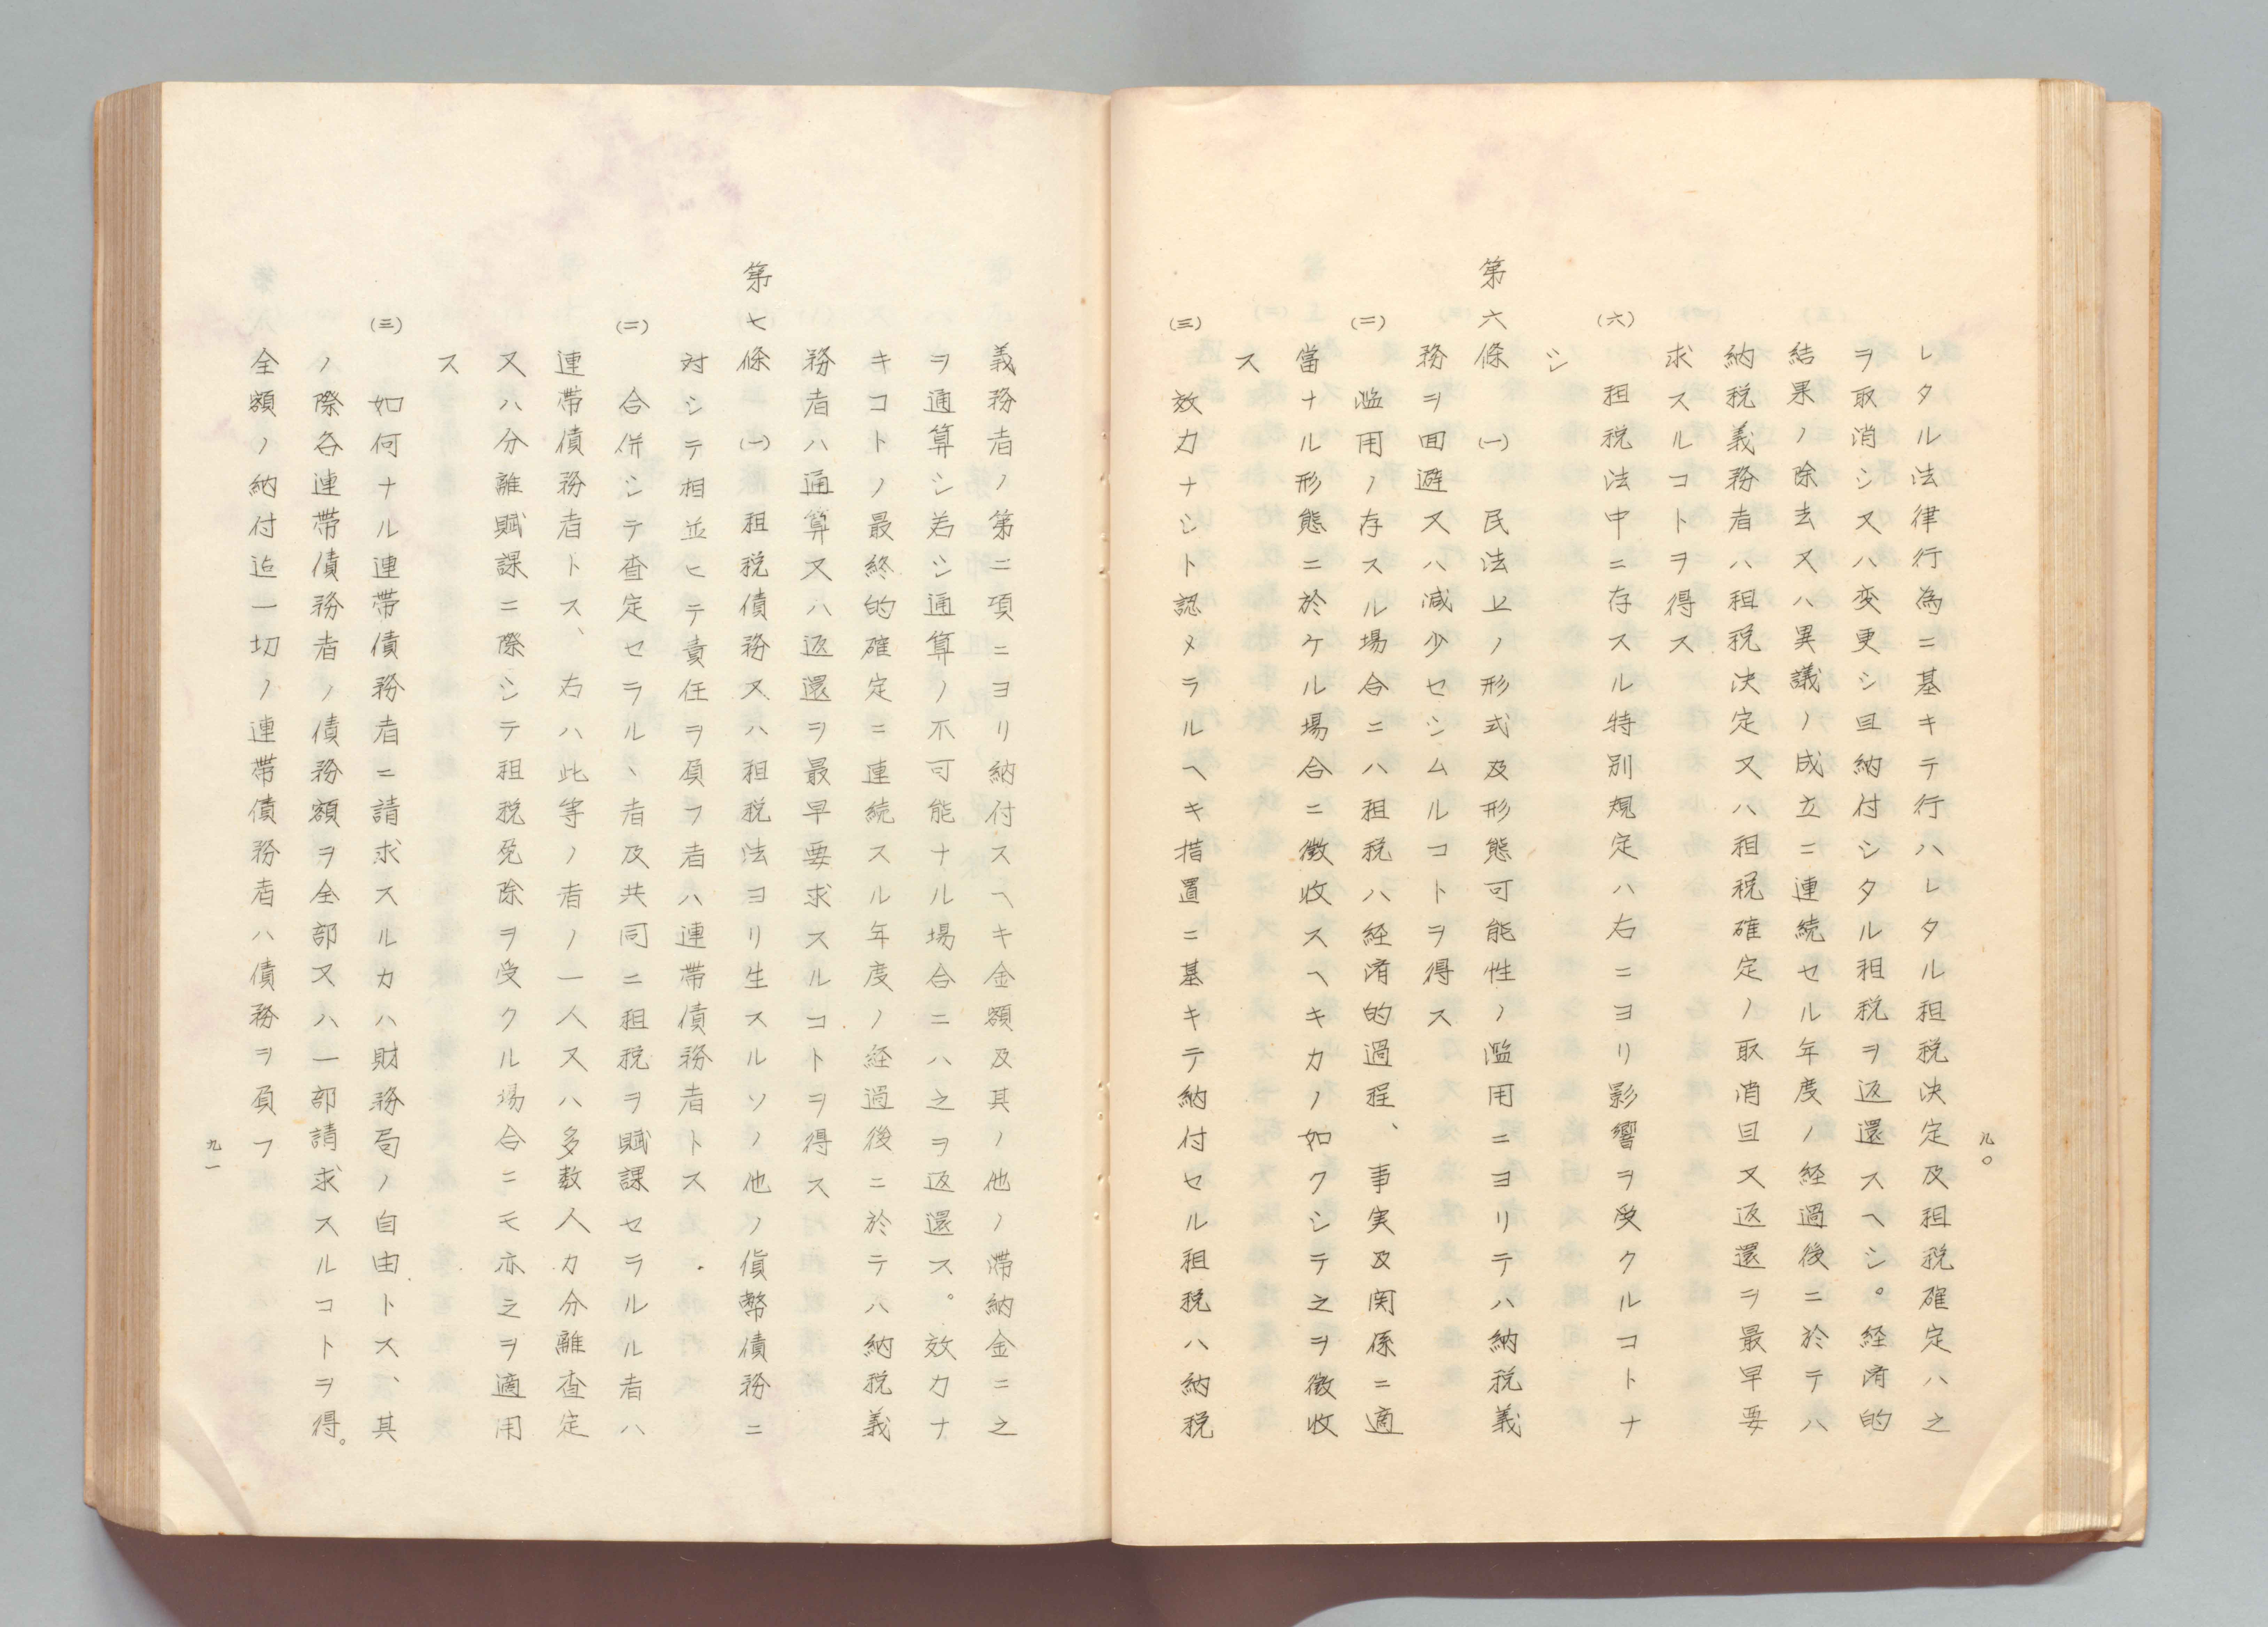 九〇
レタル法律行為ニ基キテ行ハレタル租税決定及租税確定ハ之
ヲ取消シ又ハ変更シ且納付シタル租税ヲ返還スヘシ。経済的
結果ノ除去又ハ異議ノ成立ニ連続セル年度ノ経過後ニ於テハ
納税義務者ハ租税決定又ハ租税確定ノ取消且又返還ヲ最早要
求スルコトヲ得ス
(六)　租税法中ニ存スル特別規定ハ右ニヨリ影響ヲ受クルコトナ
シ
第六條　(一)　民法上ノ形式及形態可能性ノ濫用ニヨリテハ納税義
務ヲ回避又ハ减少セシムルコトヲ得ス
(二)　濫用ノ存スル場合ニハ租税ハ経済的過程、事実及関係ニ適
當ナル形態ニ於ケル場合ニ徴收スヘキカノ如クシテ之ヲ徴收
ス
(三)　效力ナシト認メラルヘキ措置ニ基キテ納付セル租税ハ納税
義務者ノ第二項ニヨリ納付スヘキ金額及其ノ他ノ滞納金ニ之
ヲ通算シ若シ通算ノ不可能ナル場合ニハ之ヲ返還ス。效力ナ
キコトノ最終的確定ニ連続スル年度ノ経過後ニ於テハ納税義
務者ハ通算又ハ返還ヲ最早要求スルコトヲ得ス
第七條　(一)　租税債務又ハ租税法ヨリ生スルソノ他ノ貨幣債務ニ
対シテ相並ヒテ責任ヲ負フ者ハ連帯債務者トス
(二)　合併シテ査定セラルヽ者及共同ニ租税ヲ賦課セラルル者ハ
連帯債務者トス、右ハ此等ノ者ノ一人又ハ多数人カ分離査定
又ハ分離賦課ニ際シテ租税免除ヲ受クル場合ニモ亦之ヲ適用
ス
(三)　如何ナル連帯債務者ニ請求スルカハ財務局ノ自由トス、其
ノ際各連帯債務者ノ債務額ヲ全部又ハ一部請求スルコトヲ得。
全額ノ納付迄一切ノ連帯債務者ハ債務ヲ負フ
九一